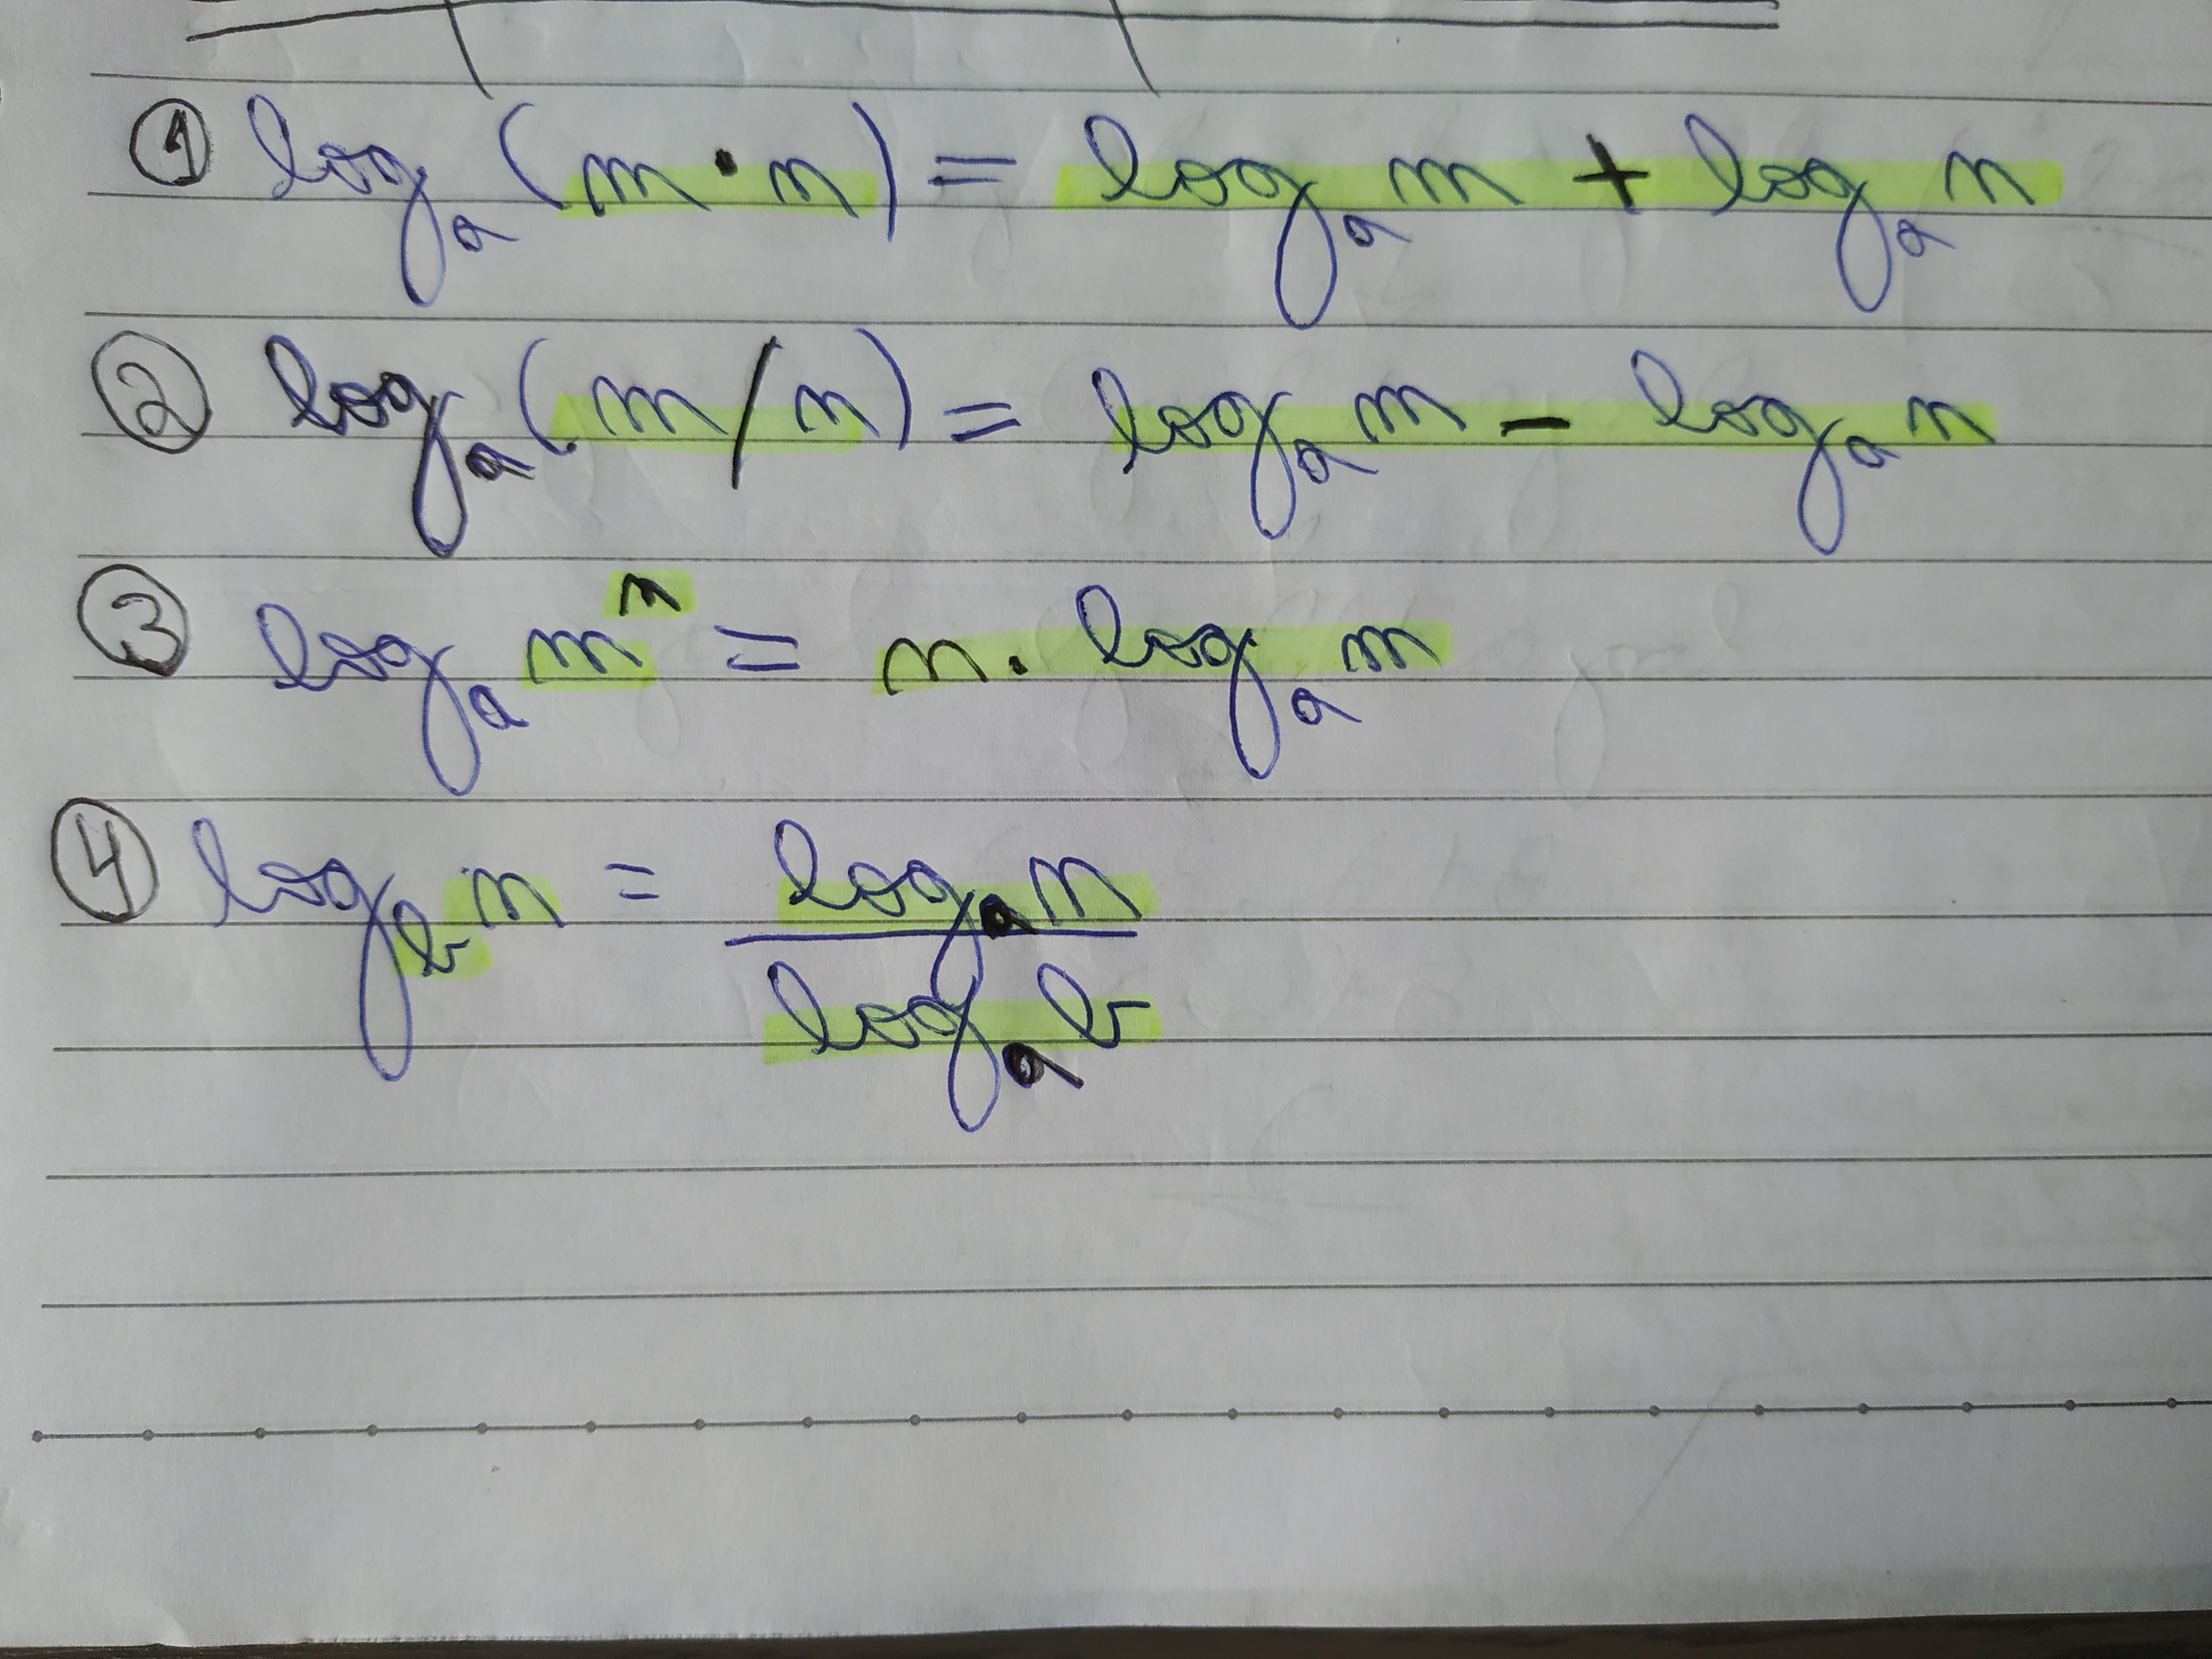 ① logₐ(m · n) = logₐ m + logₐ n
② logₐ(m / n) = logₐ m − logₐ n
③ logₐ mⁿ = n · logₐ m
④ log_b n = logₐ n / logₐ b